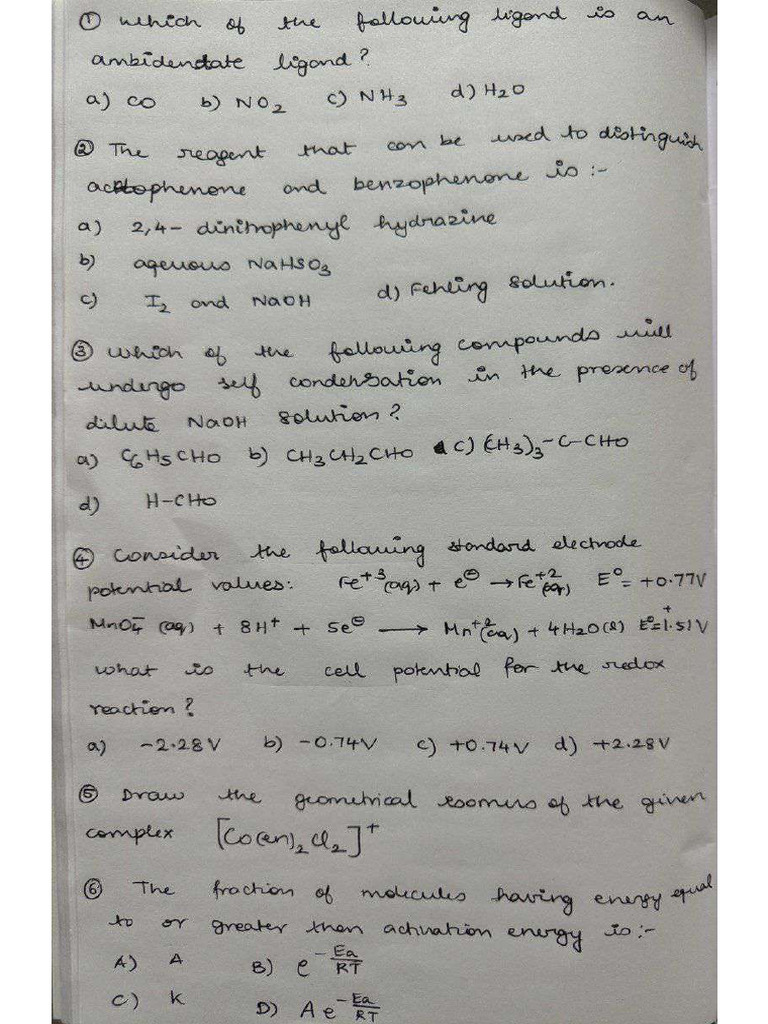 ① Which of the following ligand is an
ambidendate ligand?
a) CO b) NO2 c) NH3 d) H2O
② The reagent that can be used to distinguish
acetophenone and benzophenone is :-
a) 2,4- dinitrophenyl hydrazine
b) aqeuous NaHSO3
c) I2 and NaOH d) Fehling Solution.
③ Which of the following compounds will
undergo self condensation in the presence of
dilute NaOH solution?
a) C6H5CHO b) CH3CH2CHO c) (CH3)3-C-CHO
d) H-CHO
④ Consider the following standard electrode
potential values: Fe+3(aq) + e⊖ → Fe+2(aq) E°= +0.77V
MnO4-(aq) + 8H+ + 5e⊖ → Mn+2(aq) + 4H2O(l) E°=+1.51V
What is the cell potential for the redox
reaction?
a) -2.28V b) -0.74V c) +0.74V d) +2.28V
⑤ Draw the geometrical isomers of the given
complex [Co(en)2Cl2]+
⑥ The fraction of molecules having energy equal
to or greater than activation energy is :-
A) A B) e-Ea/RT
C) K D) Ae-Ea/RT